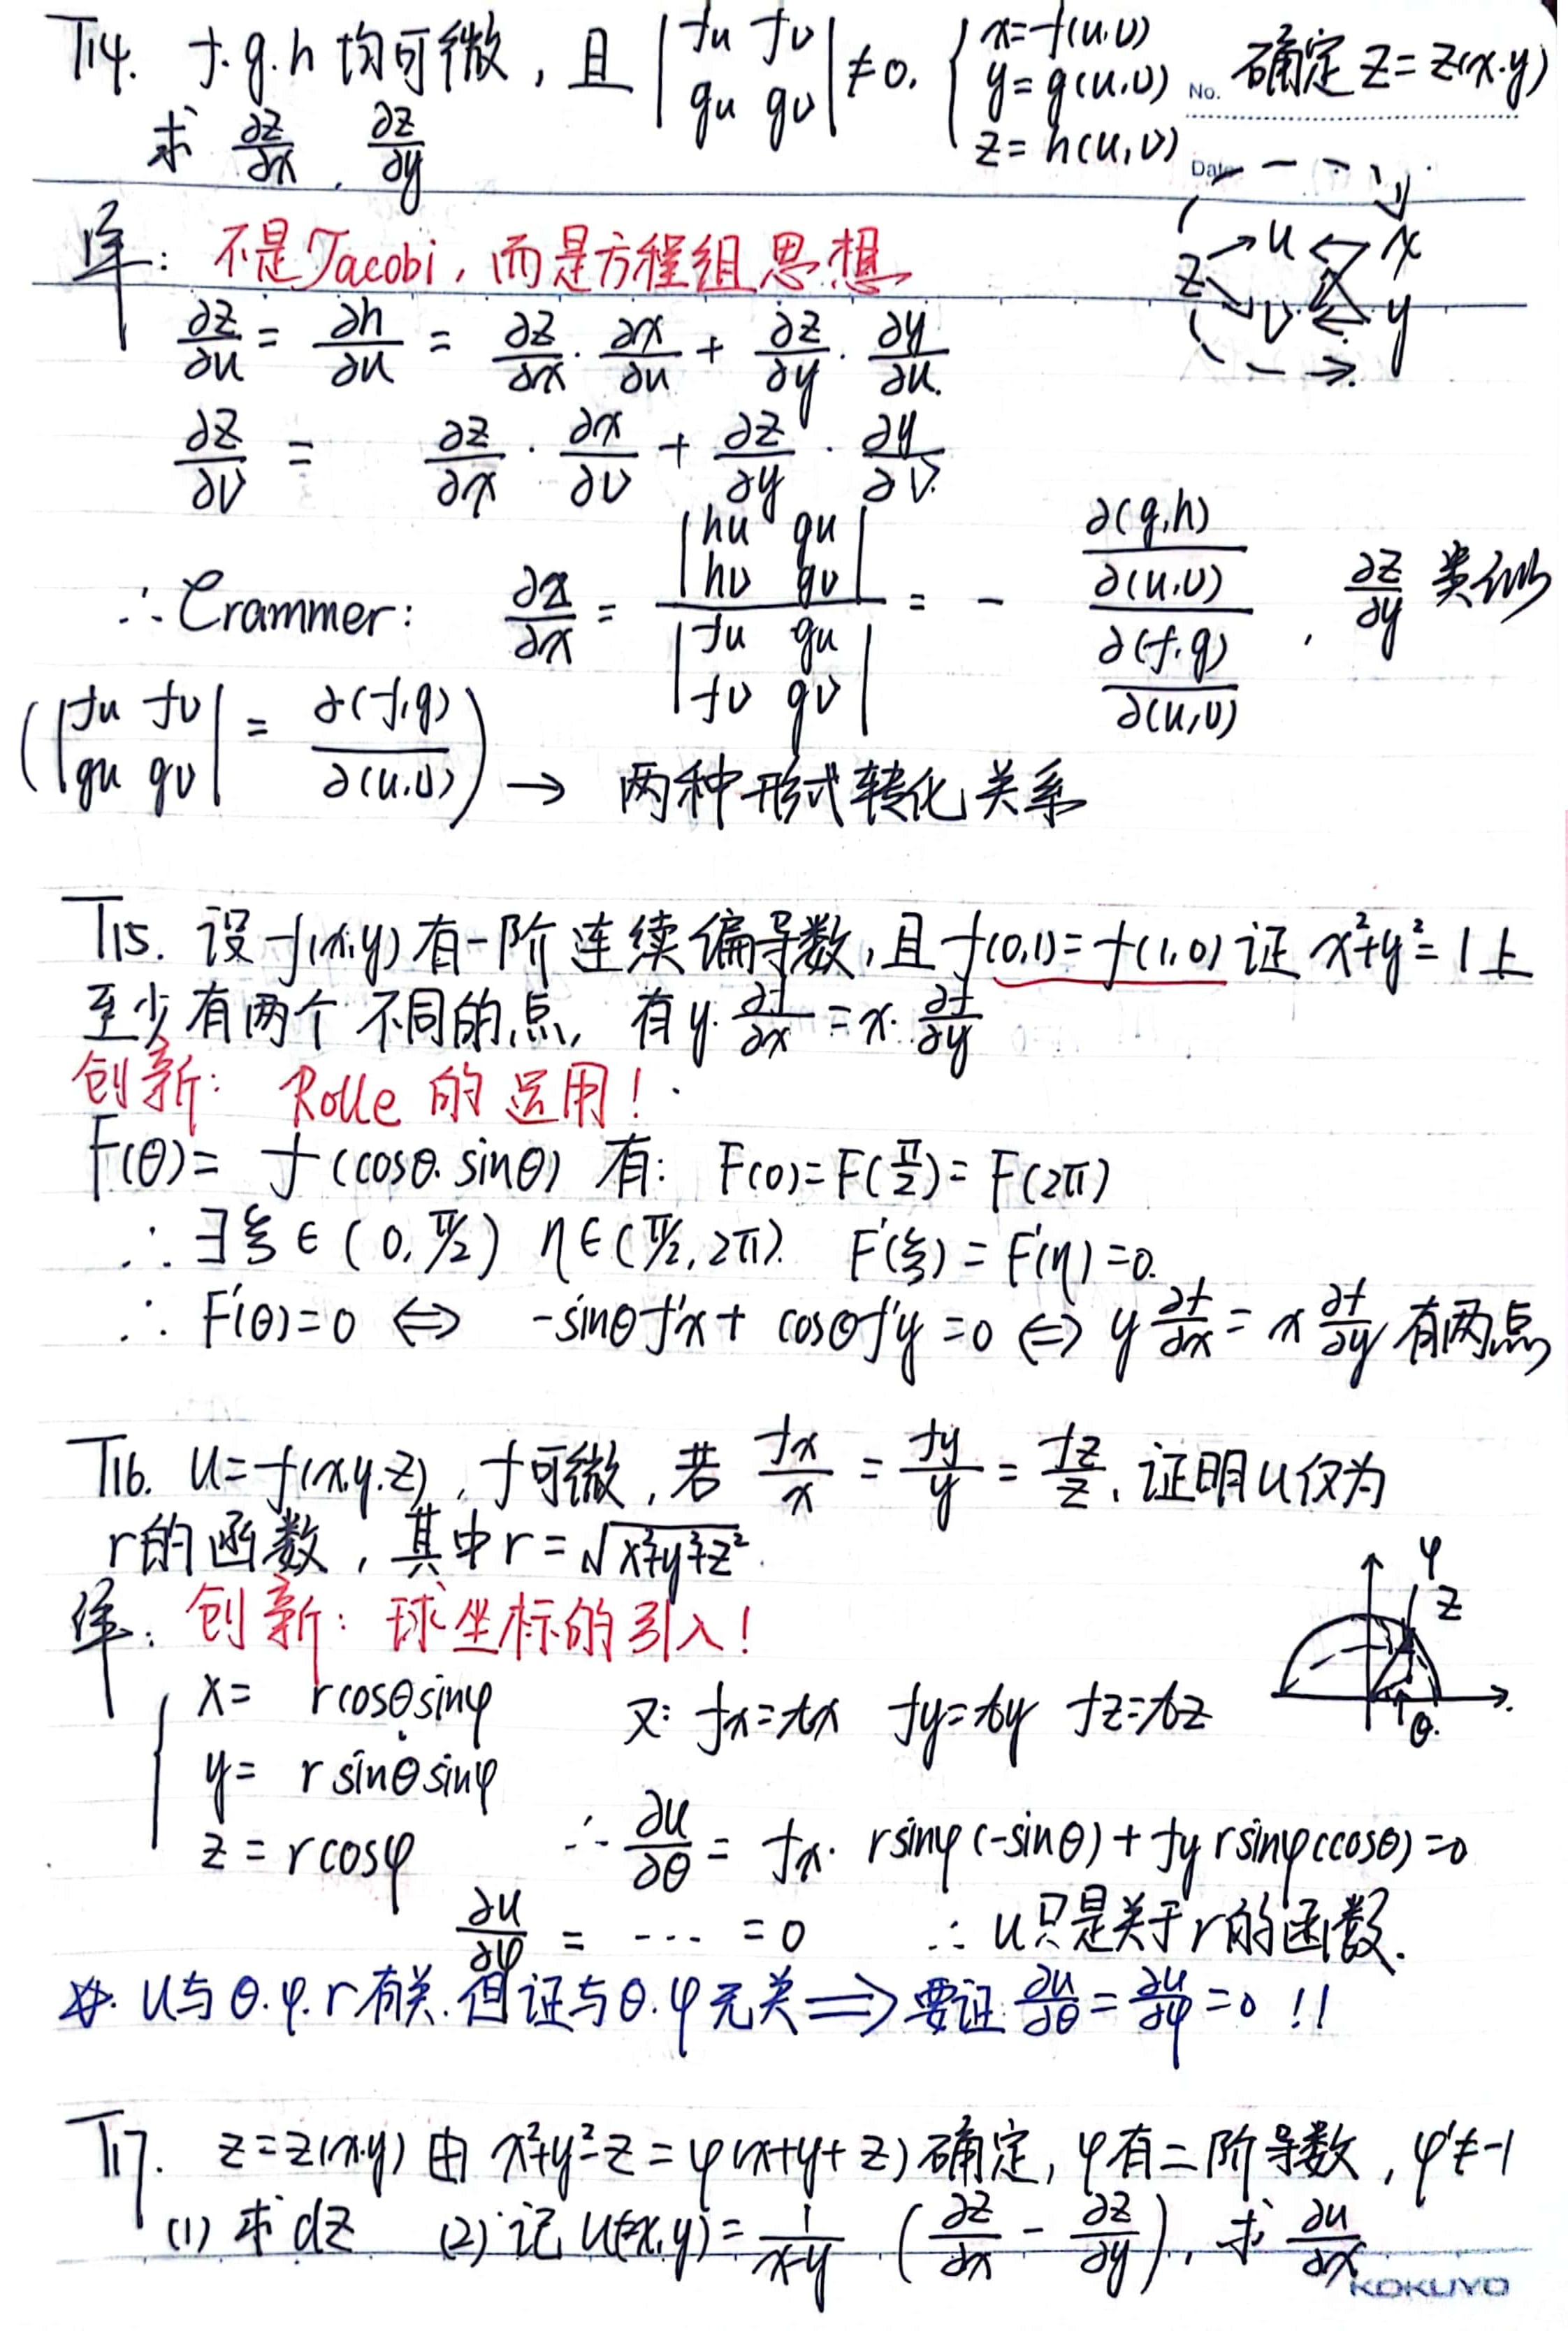 T14. f.g.h 均可微，且 |fu fv; gu gv| ≠0. { x=f(u.v) y=g(u.v) z=h(u,v) 确定 z=z(x.y)
No.
求 ∂z/∂x . ∂z/∂y
Date
解: 不是Jacobi，而是方程组思想
z u x
v y
∂z/∂u = ∂h/∂u = ∂z/∂x · ∂x/∂u + ∂z/∂y · ∂y/∂u.
∂z/∂v = ∂z/∂x · ∂x/∂v + ∂z/∂y · ∂y/∂v.
∴ Crammer: ∂z/∂x = |hu gu; hv gv| / |fu gu; fv gv| = - (∂(g,h)/∂(u.v)) / (∂(f.g)/∂(u,v)) , ∂z/∂y 类似
( |fu fv; gu gv| = ∂(f,g)/∂(u.v) ) → 两种形式转化关系
T15. 设 f(x.y) 有一阶连续偏导数,且 f(0,1)=f(1,0) 证 x²+y²=1上
至少有两个不同的点, 有 y·∂f/∂x = x·∂f/∂y
创新: Rolle 的运用!
F(θ)= f(cosθ.sinθ) 有: F(0)=F(π/2)=F(2π)
∴ ∃ξ∈(0,π/2) η∈(π/2,2π). F'(ξ)=F'(η)=0.
∴ F'(θ)=0 ⇔ -sinθf'x+ cosθf'y =0 ⇔ y ∂f/∂x = x ∂f/∂y 有两点
T16. u=f(x.y.z), f可微, 若 fx/x = fy/y = fz/z, 证明u仅为
r的函数, 其中 r=√x²+y²+z².
解: 创新: 球坐标的引入!
φ
z
θ.
{ x= rcosθsinφ 又: fx=tx fy=ty fz=tz
y= rsinθsinφ
z=rcosφ ∴ ∂u/∂θ = fx· rsinφ(-sinθ)+fy rsinφ(cosθ)=0
∂u/∂φ = ... =0 ∴ u只是关于r的函数.
※. u与θ.φ.r有关.但证与θ.φ无关 ⇒ 要证 ∂u/∂θ = ∂u/∂φ =0 !!
T17. z=z(x.y) 由 x²+y²-z=φ(x+y+z) 确定, φ有二阶导数, φ'≠-1
(1) 求dz (2) 记 u(x,y)= 1/x-y (∂z/∂x - ∂z/∂y), 求 ∂u/∂x
KOKUYO